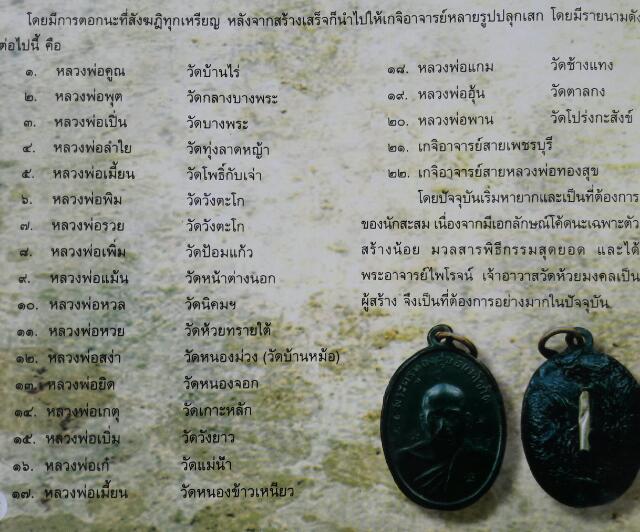 โดยมีการตอกนะที่สังฆฏิทุกเหรียญ หลังจากสร้างเสร็จก็นำไปให้เกจิอาจารย์หลายรูปปลุกเสก โดยมีรายนามดัง
ต่อไปนี้ คือ
๑. หลวงพ่อคูณ วัดบ้านไร่
๒. หลวงพ่อพุต วัดกลางบางพระ
๓. หลวงพ่อเปิ่น วัดบางพระ
๔. หลวงพ่อลำไย วัดทุ่งลาดหญ้า
๕. หลวงพ่อเมี้ยน วัดโพธิ์กับเจ่า
๖. หลวงพ่อพิม วัดวังตะโก
๗. หลวงพ่อรวย วัดวังตะโก
๘. หลวงพ่อเพิ่ม วัดป้อมแก้ว
๙. หลวงพ่อแม้น วัดหน้าต่างนอก
๑๐. หลวงพ่อหวล วัดนิคมฯ
๑๑. หลวงพ่อหวย วัดห้วยทรายใต้
๑๒. หลวงพ่อสง่า วัดหนองม่วง (วัดบ้านหม้อ)
๑๓. หลวงพ่อยิด วัดหนองจอก
๑๔. หลวงพ่อเกตุ วัดเกาะหลัก
๑๕. หลวงพ่อเบิ่ม วัดวังยาว
๑๖. หลวงพ่อเก๋ วัดแม่น้ำ
๑๗. หลวงพ่อเมี้ยน วัดหนองข้าวเหนียว
๑๘. หลวงพ่อแกม วัดช้างแทง
๑๙. หลวงพ่ออุ้น วัดตาลกง
๒๐. หลวงพ่อพาน วัดโป่งกะสังข์
๒๑. เกจิอาจารย์สายเพชรบุรี
๒๒. เกจิอาจารย์สายหลวงพ่อทองสุข
โดยปัจจุบันเริ่มหายากและเป็นที่ต้องการ
ของนักสะสม เนื่องจากมีเอกลักษณ์โค้ดนะเฉพาะตัว
สร้างน้อย มวลสารพิธีกรรมสุดยอด และได้
พระอาจารย์ไพโรจน์ เจ้าอาวาสวัดห้วยมงคลเป็น
ผู้สร้าง จึงเป็นที่ต้องการอย่างมากในปัจจุบัน